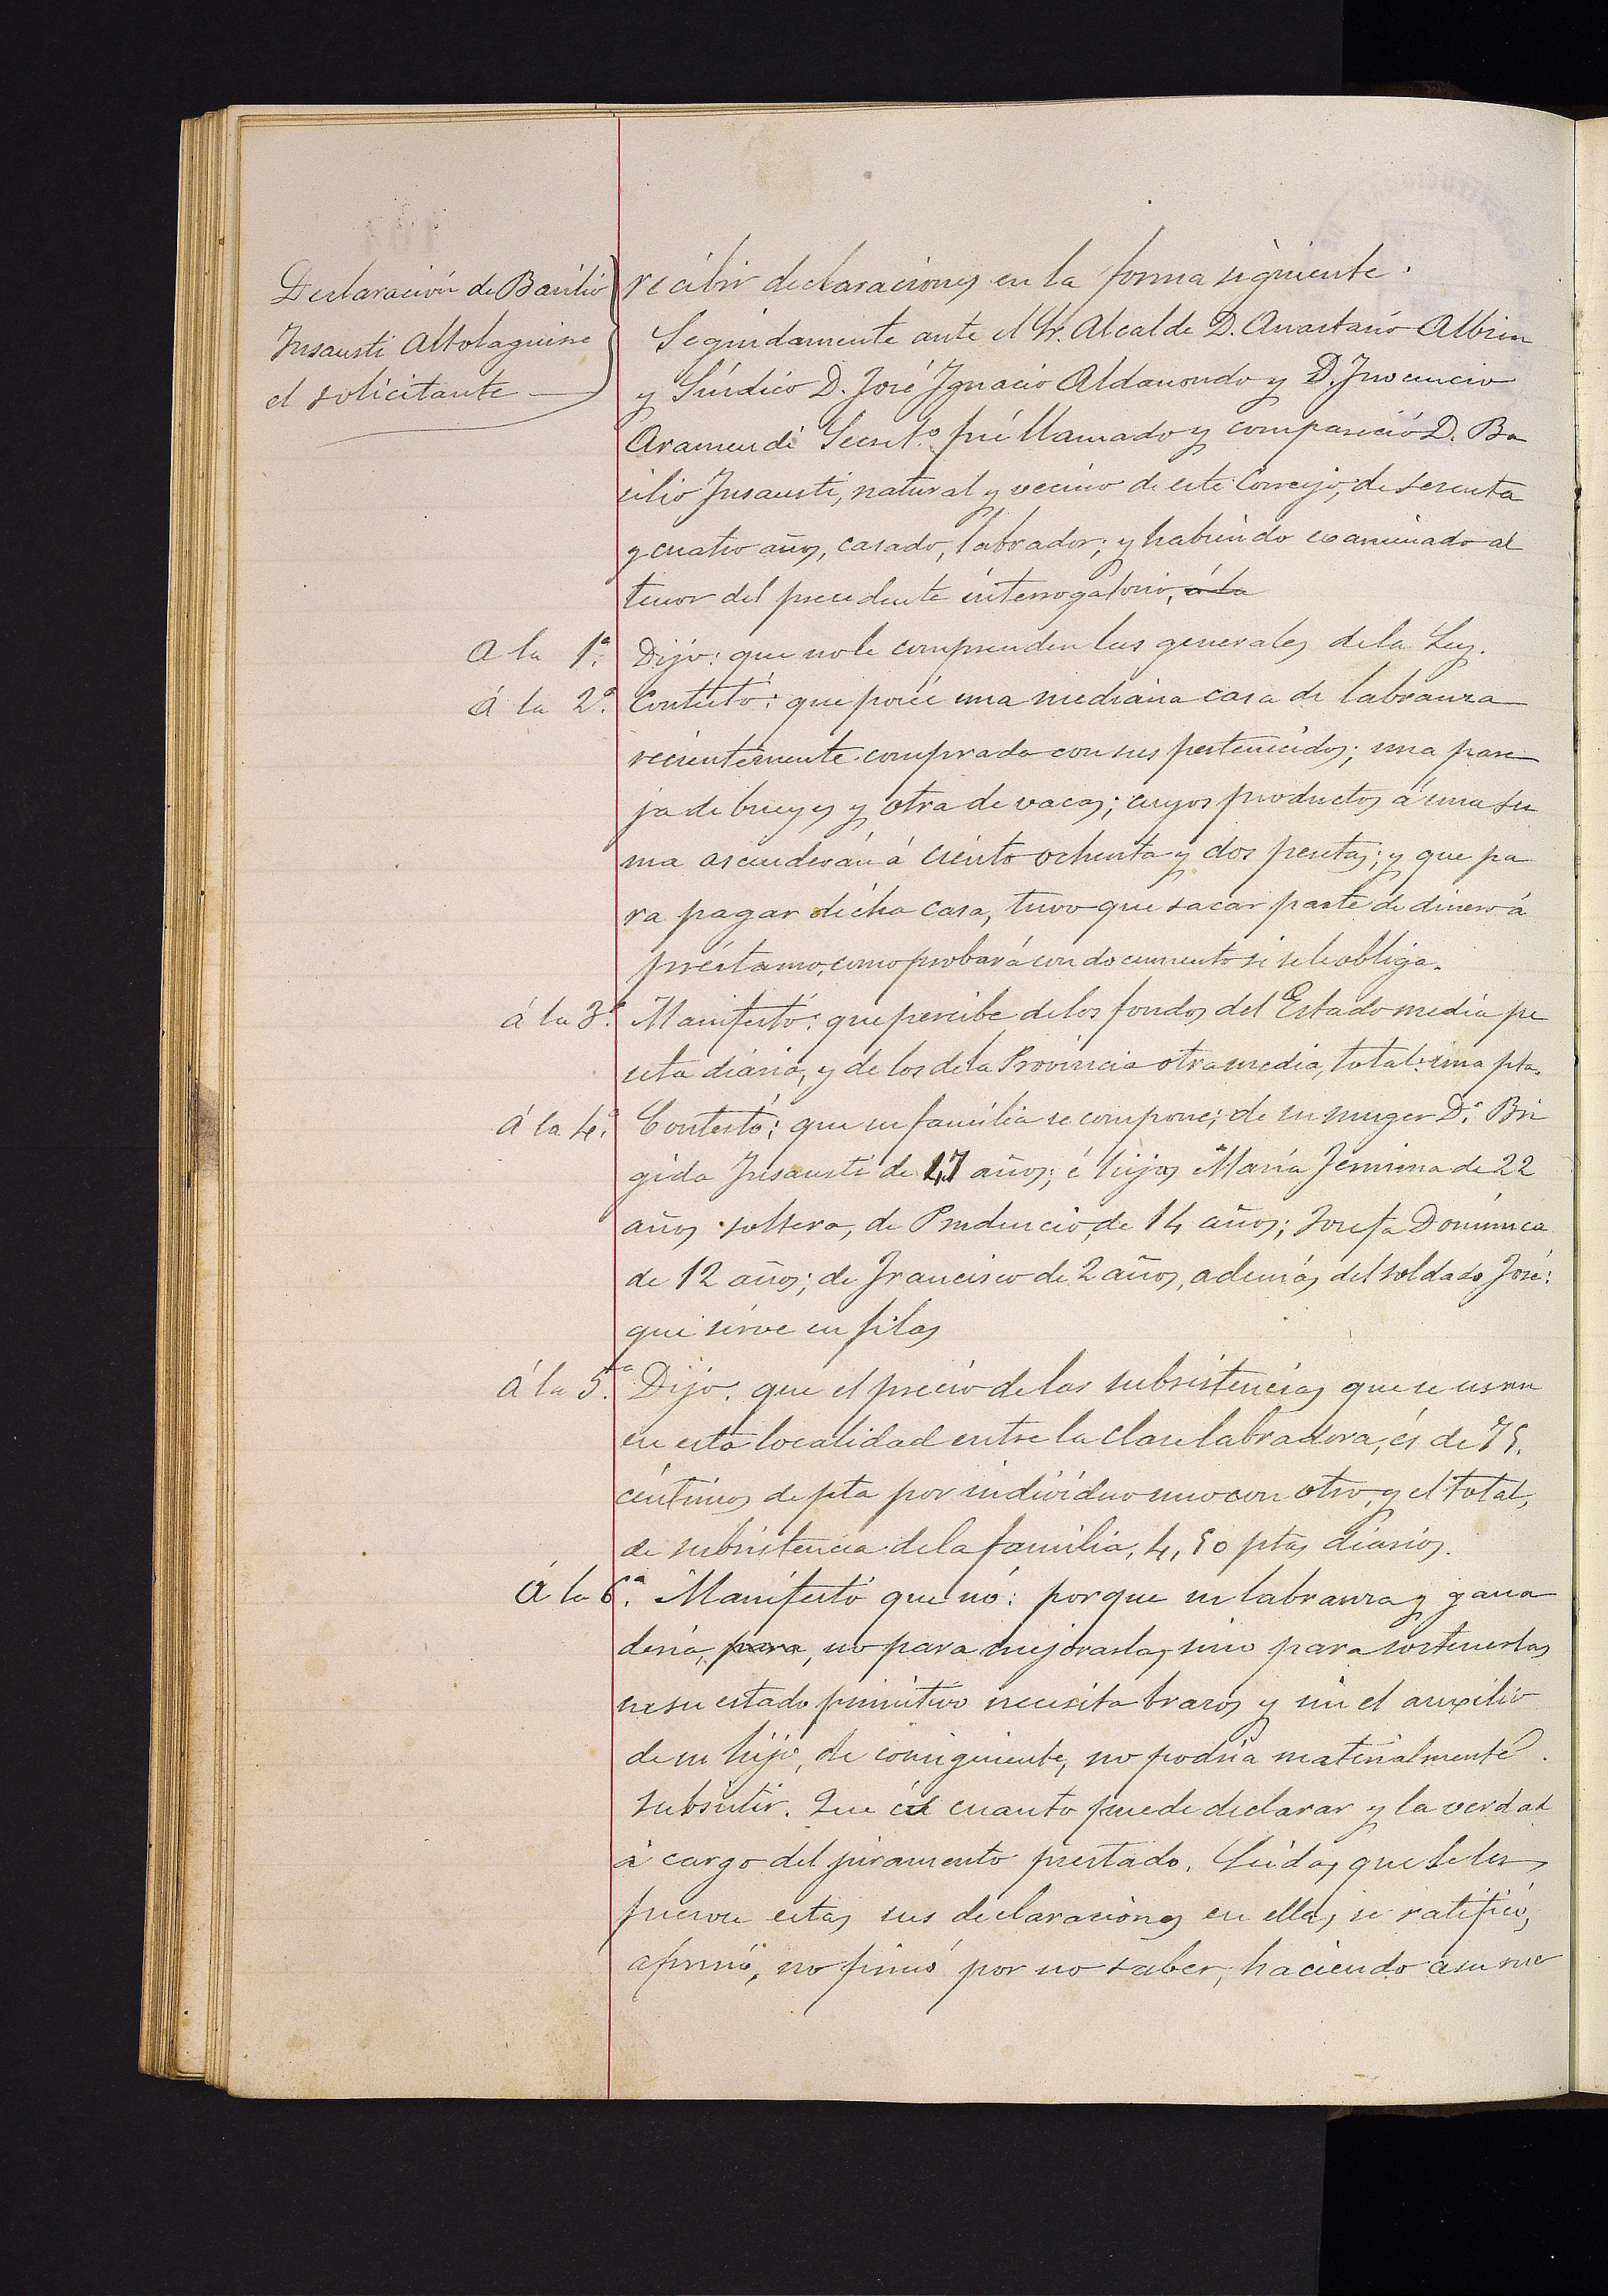 Declaración de Basilio
Insausti Altolaguirre
el solicitante
recibir declaraciones en la forma siguiente.
Seguidamente ante el Sr. Alcalde D. Anastasio Albisu
y Síndico D. José Ignacio Aldanondo y D. Inocencio
Aramendi Secret.º fué llamado y compareció D. Ba
silio Insausti, natural y vecino de este Concejo, de sesenta
y cuatro años, casado, labrador; y habiendo examinado al
tenor del precedente interrogatorio, á la
A la 1ª. Dijo: que no le comprenden las generales de la Ley.
á la 2ª. Contestó: que poseé una mediana casa de labranza
recientemente comprada con sus pertenecidos; una pare
ja de bueyes y otra de vacas; cuyos productos á una su
ma ascenderán á ciento ochenta y dos pesetas; y que pa
ra pagar dicha casa, tuvo que sacar parte de dinero á
préstamo, como probará con documento si se le obliga.
á la 3ª. Manifestó: que percibe de los fondos del Estado media pe
seta diaria, y de los de la Provincia otra media, total: una pta.
Á la 4ª. Contestó: que su familia se compone; de su muger Dª. Bri
gida Insausti de 47 años; é hijos María Jemima de 22
años soltera, de Prudencio, de 14 años; Josefa Dominica
de 12 años; de Francisco de 2 años, además del soldado José:
que sirve en filas
Á la 5ª. Dijo: que el precio de las subsistencias que se usan
en esta localidad entre la clase labradora, és de 75.
céntimos de pta por individuo uno con otro, y el total,
de subsistencia de la familia, 4,50 ptas diarios.
Á la 6ª. Manifestó que nó: porque su labranza y gana
dería, para, no para mejorarlas, sino para sostenerlas
en su estado primitivo necesita brazos y sin el auxilio
de su hijo, de consiguiente, no podría materialmente
subsistir. Que és cuanto puede declarar y la verdad
á cargo del juramento prestado. Leidas que le les
fueron estas sus declaraciones en ellas se ratificó,
afirmó, no firmó por no saber, haciendo á su rue